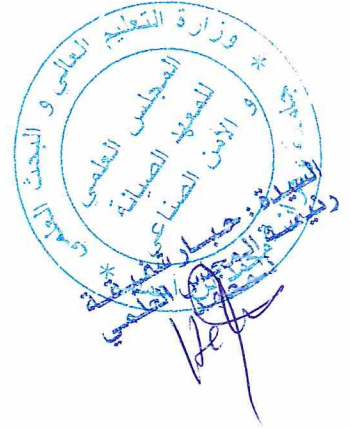 * وزارة التعليم العالي و البحث العلمي *
المجلس العلمي
لمعهد الصيانة
و الأمن الصناعي
السيدة : حبار شفيقة
رئيسة المجلس العلمي